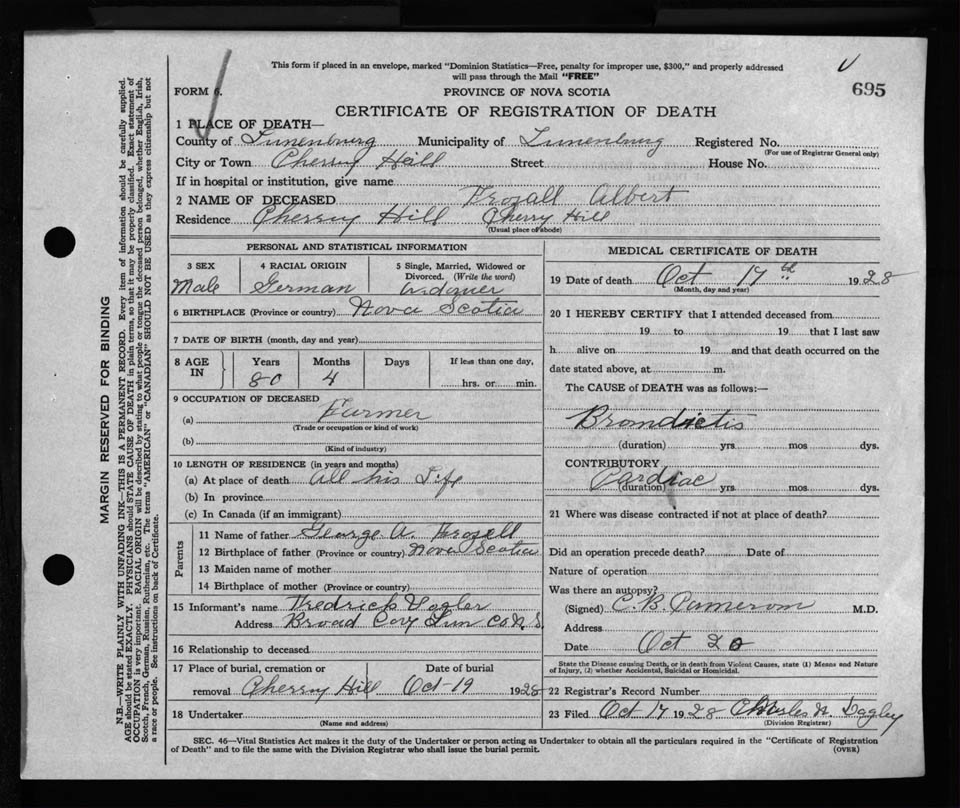 This form if placed in an envelope, marked "Dominion Statistics—Free, penalty for improper use, $300," and properly addressed
will pass through the Mail "FREE"
695
FORM 6.
PROVINCE OF NOVA SCOTIA
CERTIFICATE OF REGISTRATION OF DEATH
1 PLACE OF DEATH—
County of Lunenburg Municipality of Lunenburg Registered No.
(For use of Registrar General only)
City or Town Cherry Hill Street House No.
If in hospital or institution, give name
2 NAME OF DECEASED Albert
Residence Cherry Hill Cherry Hill
(Usual place of abode)
PERSONAL AND STATISTICAL INFORMATION
3 SEX 4 RACIAL ORIGIN 5 Single, Married, Widowed or
Divorced. (Write the word)
Male German
6 BIRTHPLACE (Province or country) Nova Scotia
7 DATE OF BIRTH (month, day and year)
8 AGE IN Years Months Days If less than one day,
80 4 hrs. or min.
9 OCCUPATION OF DECEASED
(a) Farmer
(Trade or occupation or kind of work)
(b)
(Kind of industry)
10 LENGTH OF RESIDENCE (in years and months)
(a) At place of death All his Life
(b) In province
(c) In Canada (if an immigrant)
Parents
11 Name of father George A.
12 Birthplace of father (Province or country) Nova Scotia
13 Maiden name of mother
14 Birthplace of mother (Province or country)
15 Informant's name Fredrick Vogler
Address Broad Cove Lun Co N.S.
16 Relationship to deceased
17 Place of burial, cremation or Date of burial
removal Cherry Hill Oct-19 1928
18 Undertaker
(Name and address)
MEDICAL CERTIFICATE OF DEATH
19 Date of death Oct 17th 1928
(Month, day and year)
20 I HEREBY CERTIFY that I attended deceased from
19 to 19 that I last saw
h alive on 19 and that death occurred on the
date stated above, at m.
The CAUSE of DEATH was as follows:—
(duration) yrs mos dys.
CONTRIBUTORY
Cardiac
(duration) yrs mos dys.
21 Where was disease contracted if not at place of death?
Did an operation precede death? Date of
Nature of operation
Was there an autopsy?
(Signed) C.B. Cameron M.D.
Address
Date Oct 20
State the Disease causing Death, or in death from Violent Causes, state (1) Means and Nature
of Injury, (2) whether Accidental, Suicidal or Homicidal.
22 Registrar's Record Number
23 Filed Oct 17 1928 Charles N. Dagley
(Division Registrar)
SEC. 46—Vital Statistics Act makes it the duty of the Undertaker or person acting as Undertaker to obtain all the particulars required in the "Certificate of Registration
of Death" and to file the same with the Division Registrar who shall issue the burial permit. (OVER)
MARGIN RESERVED FOR BINDING
N.B.—WRITE PLAINLY WITH UNFADING INK—THIS IS A PERMANENT RECORD. Every item of information should be carefully supplied.
AGE should be stated EXACTLY. PHYSICIANS should STATE CAUSE OF DEATH in plain terms, so that it may be properly classified. Exact statement of
OCCUPATION is very important. RACIAL ORIGIN will be described by stating to what people or tongue the deceased person belonged, whether English, Irish,
Scotch, French, German, Russian, Ruthenian, etc. The terms "AMERICAN" or "CANADIAN" SHOULD NOT BE USED as they express citizenship but not
a race or people. See instructions on back of Certificate.